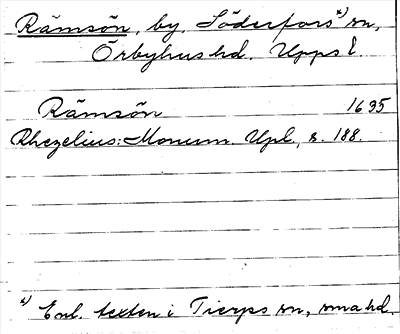 Rämsön, by, Söderfors *) sn,
Örbyhus hd. Upps l.
Rämsön 1635
Rhezelius: Monum. Upl., s. 188.
*) Enl. texten i Tierps sn, sma hd.